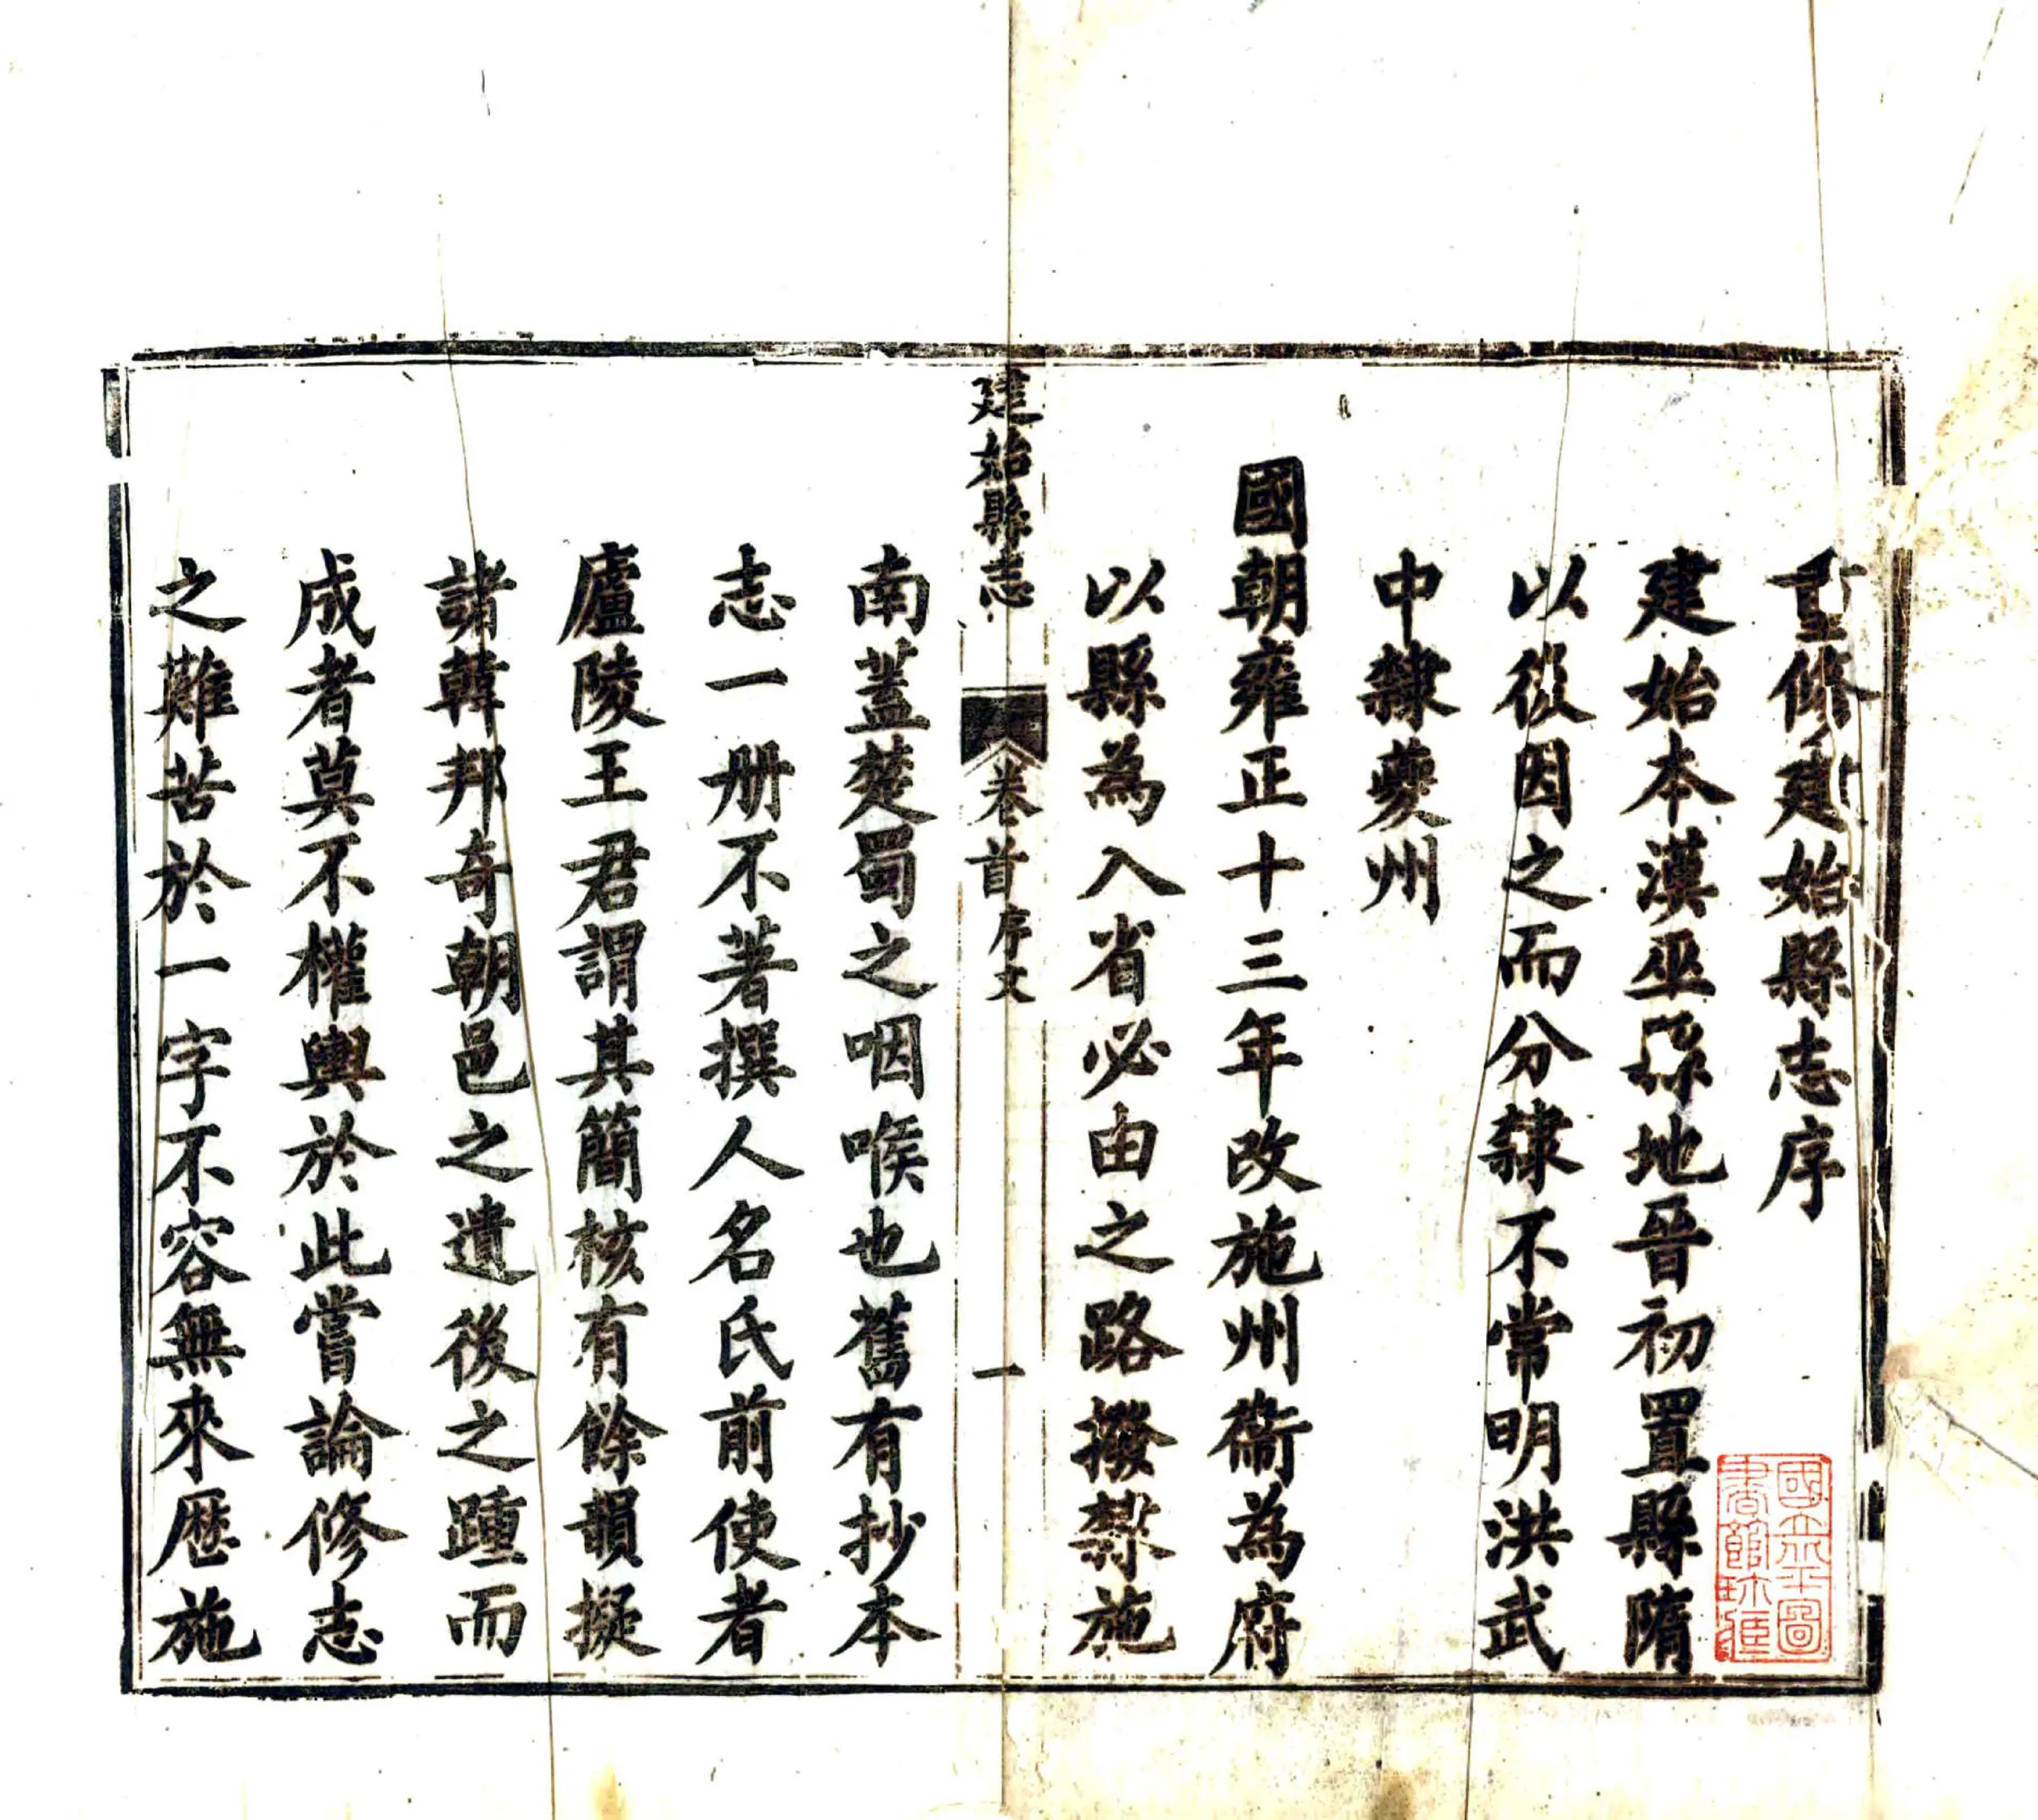 重修建始縣志序
建始本漢巫縣地晉初置縣隋
以後因之而分隸不常明洪武
中隸夔州
國朝雍正十三年改施州衞為府
以縣為入省必由之路撥隸施
建始縣志
卷首
序文
一
南蓋楚蜀之咽喉也舊有抄本
志一册不著撰人名氏前使者
廬陵王君謂其簡核有餘韻擬
諸韓邦奇朝邑之遺後之踵而
成者莫不權輿於此嘗論修志
之難苦於一字不容無來歷施
國立北平圖
書館珍藏